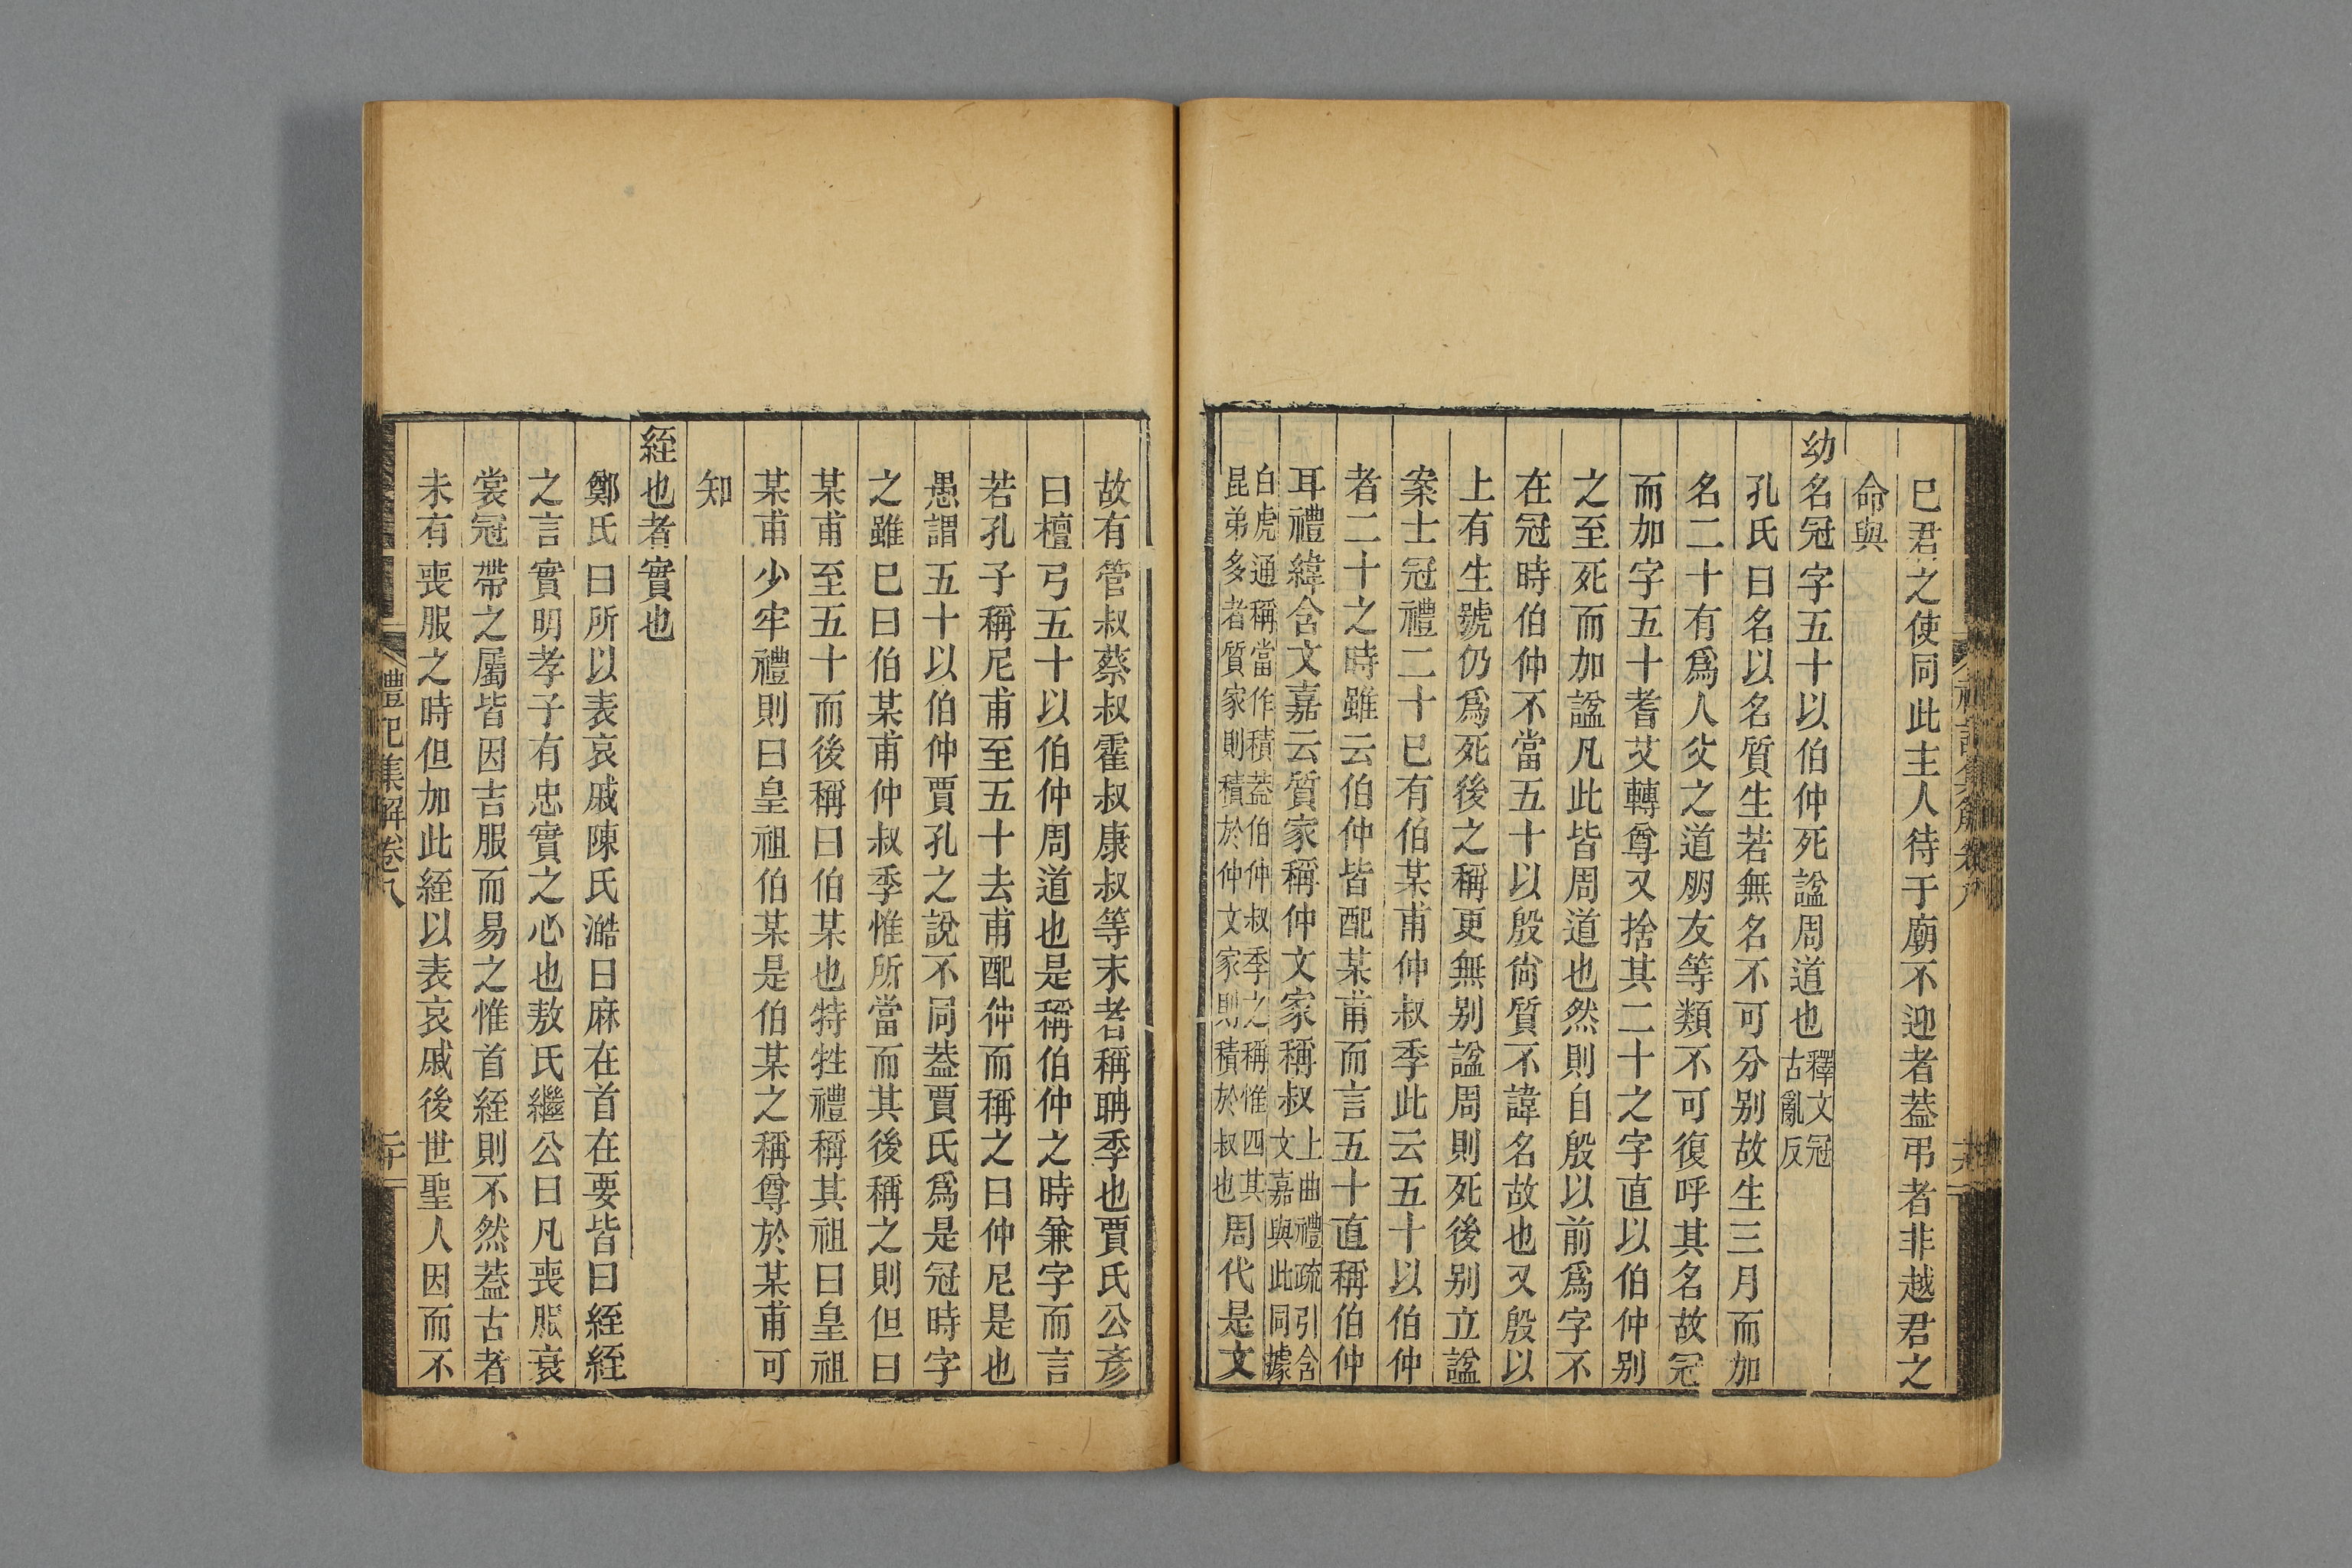 巳君之使同此主人待于廟不迎者葢弔者非越君之
命與
幼名冠字五十以伯仲死諡周道也釋文冠
古亂反
孔氏曰名以名質生若無名不可分别故生三月而加
名二十有爲人父之道朋友等類不可復呼其名故冠
而加字五十耆艾轉尊又捨其二十之字直以伯仲别
之至死而加諡凡此皆周道也然則自殷以前爲字不
在冠時伯仲不當五十以殷尙質不諱名故也又殷以
上有生號仍爲死後之稱更無别諡周則死後别立諡
案士冠禮二十巳有伯某甫仲叔季此云五十以伯仲
者二十之時雖云伯仲皆配某甫而言五十直稱伯仲
耳禮緯含文嘉云質家稱仲文家稱叔上曲禮疏引含
文嘉與此同據
白虎通稱當作積葢伯仲叔季之稱惟四其
昆弟多者質家則積於仲文家則積於叔也周代是文
故有管叔蔡叔霍叔康叔等末者稱聃季也賈氏公彥
曰檀弓五十以伯仲周道也是稱伯仲之時兼字而言
若孔子稱尼甫至五十去甫配仲而稱之曰仲尼是也
愚謂五十以伯仲賈孔之說不同葢賈氏爲是冠時字
之雖巳曰伯某甫仲叔季惟所當而其後稱之則但曰
某甫至五十而後稱曰伯某也特牲禮稱其祖曰皇祖
某甫少牢禮則曰皇祖伯某是伯某之稱尊於某甫可
知
絰也者實也
鄭氏曰所以表哀戚陳氏澔曰麻在首在要皆曰絰絰
之言實明孝子有忠實之心也敖氏繼公曰凡喪服衰
裳冠帶之屬皆因吉服而易之惟首絰則不然葢古者
未有喪服之時但加此絰以表哀戚後世聖人因而不
禮記集解卷八